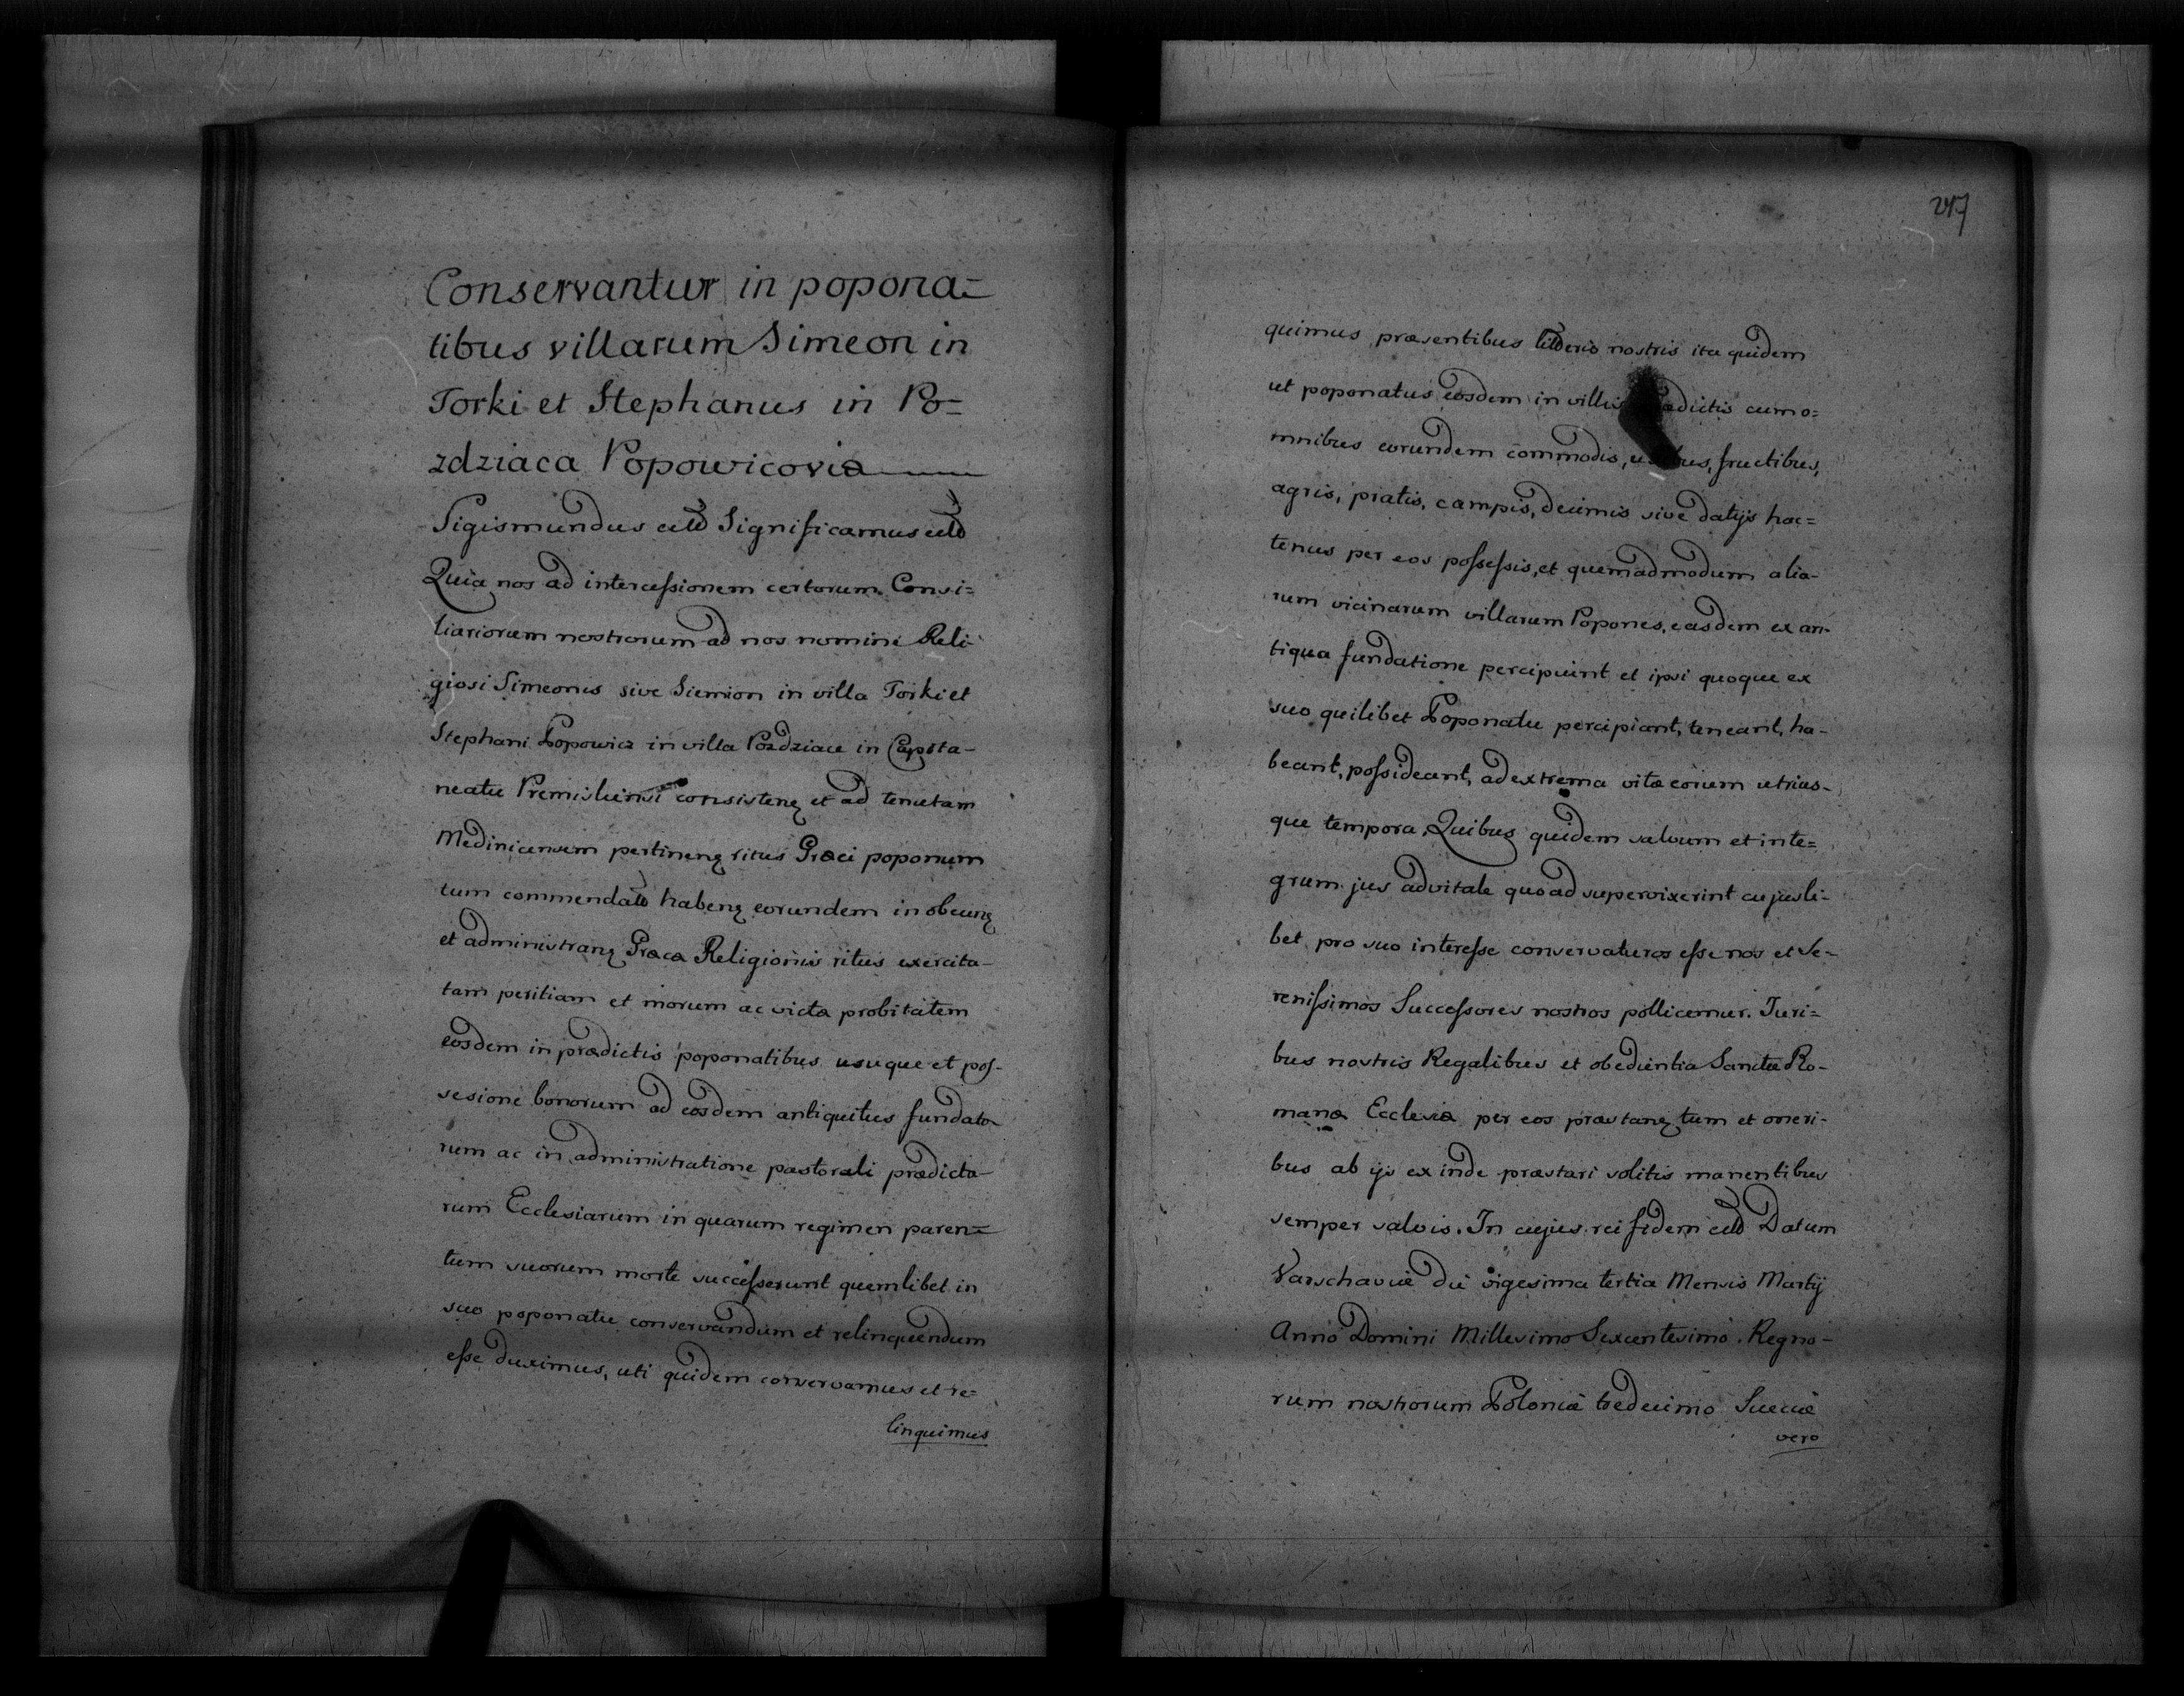 Conservantur in popona=
tibus villarum Simeon in
Torki et Stephanus in Po=
zdziaca Popowicovia
Sigismundus etc Significamus etc
Quia nos ad intercessionem certorum Consi=
liariorum nostrorum ad nos nomine Reli-
giosi Simeonis sive Siemion in villa Torki et
Stephani Popowicz in villa Pozdziace in Capita-
neatu Premisliensi consisten. et ad tenutam
Medinicensem pertinen. ritus Græci poponum
tum commendat. haben. eorundem in obeun.
et administran. Græcæ Religionis ritus exercita-
tam peritiam et morum ac victæ probitatem
eosdem in prædictis poponatibus usuque et pos-
sesione bonorum ad eosdem antiquitus fundato-
rum ac in administratione pastorali prædicta-
rum Ecclesiarum in quarum regimen paren=
tum suorum morte successerunt quemlibet in
suo poponatu conservandum et relinquendum
esse duximus, uti quidem conservamus et re=
linquimus
247
quimus præsentibus litteris nostris ita quidem
ut poponatus eosdem in villis adictis cum o=
mnibus eorundem commodis, fructibus,
agris, pratis, campis, decimis sive datijs hac=
tenus per eos possessis, et quemadmodum alia-
rum vicinarum villarum Popones, easdem ex an-
tiqua fundatione percipuint et ipsi quoque ex
suo quilibet Poponatu percipiant, teneant, ha-
beant, possideant, ad extrema vitæ eorum utrius-
que tempora, Quibus quidem salvum et inte=
grum jus advitale quoad supervixerint cujusli-
bet pro suo interesse conservaturos esse nos et Se-
renissimos Successores nostros pollicemur. Juri=
bus nostris Regalibus et obedientia Sanctæ Ro-
manæ Ecclesiæ per eos præstan. tum et oneri-
bus ab ijs ex inde præstari solitis manentibus
semper salvis. In cujus rei fidem etc Datum
Varschaviæ die vigesima tertia Mensis Martij
Anno Domini Millesimo Sexcentesimo. Regno-
rum nostrorum Poloniæ tredecimo Sueciæ
vero